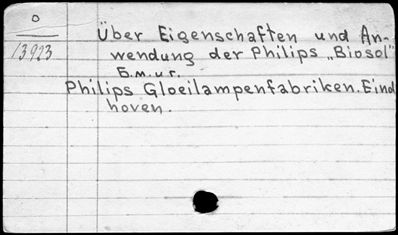 O
13923
Über Eigenschaften und An-
wendung der Philips „Biosol"
Б.м.и г.
Philips Gloeilampenfabriken. Eind
hoven.